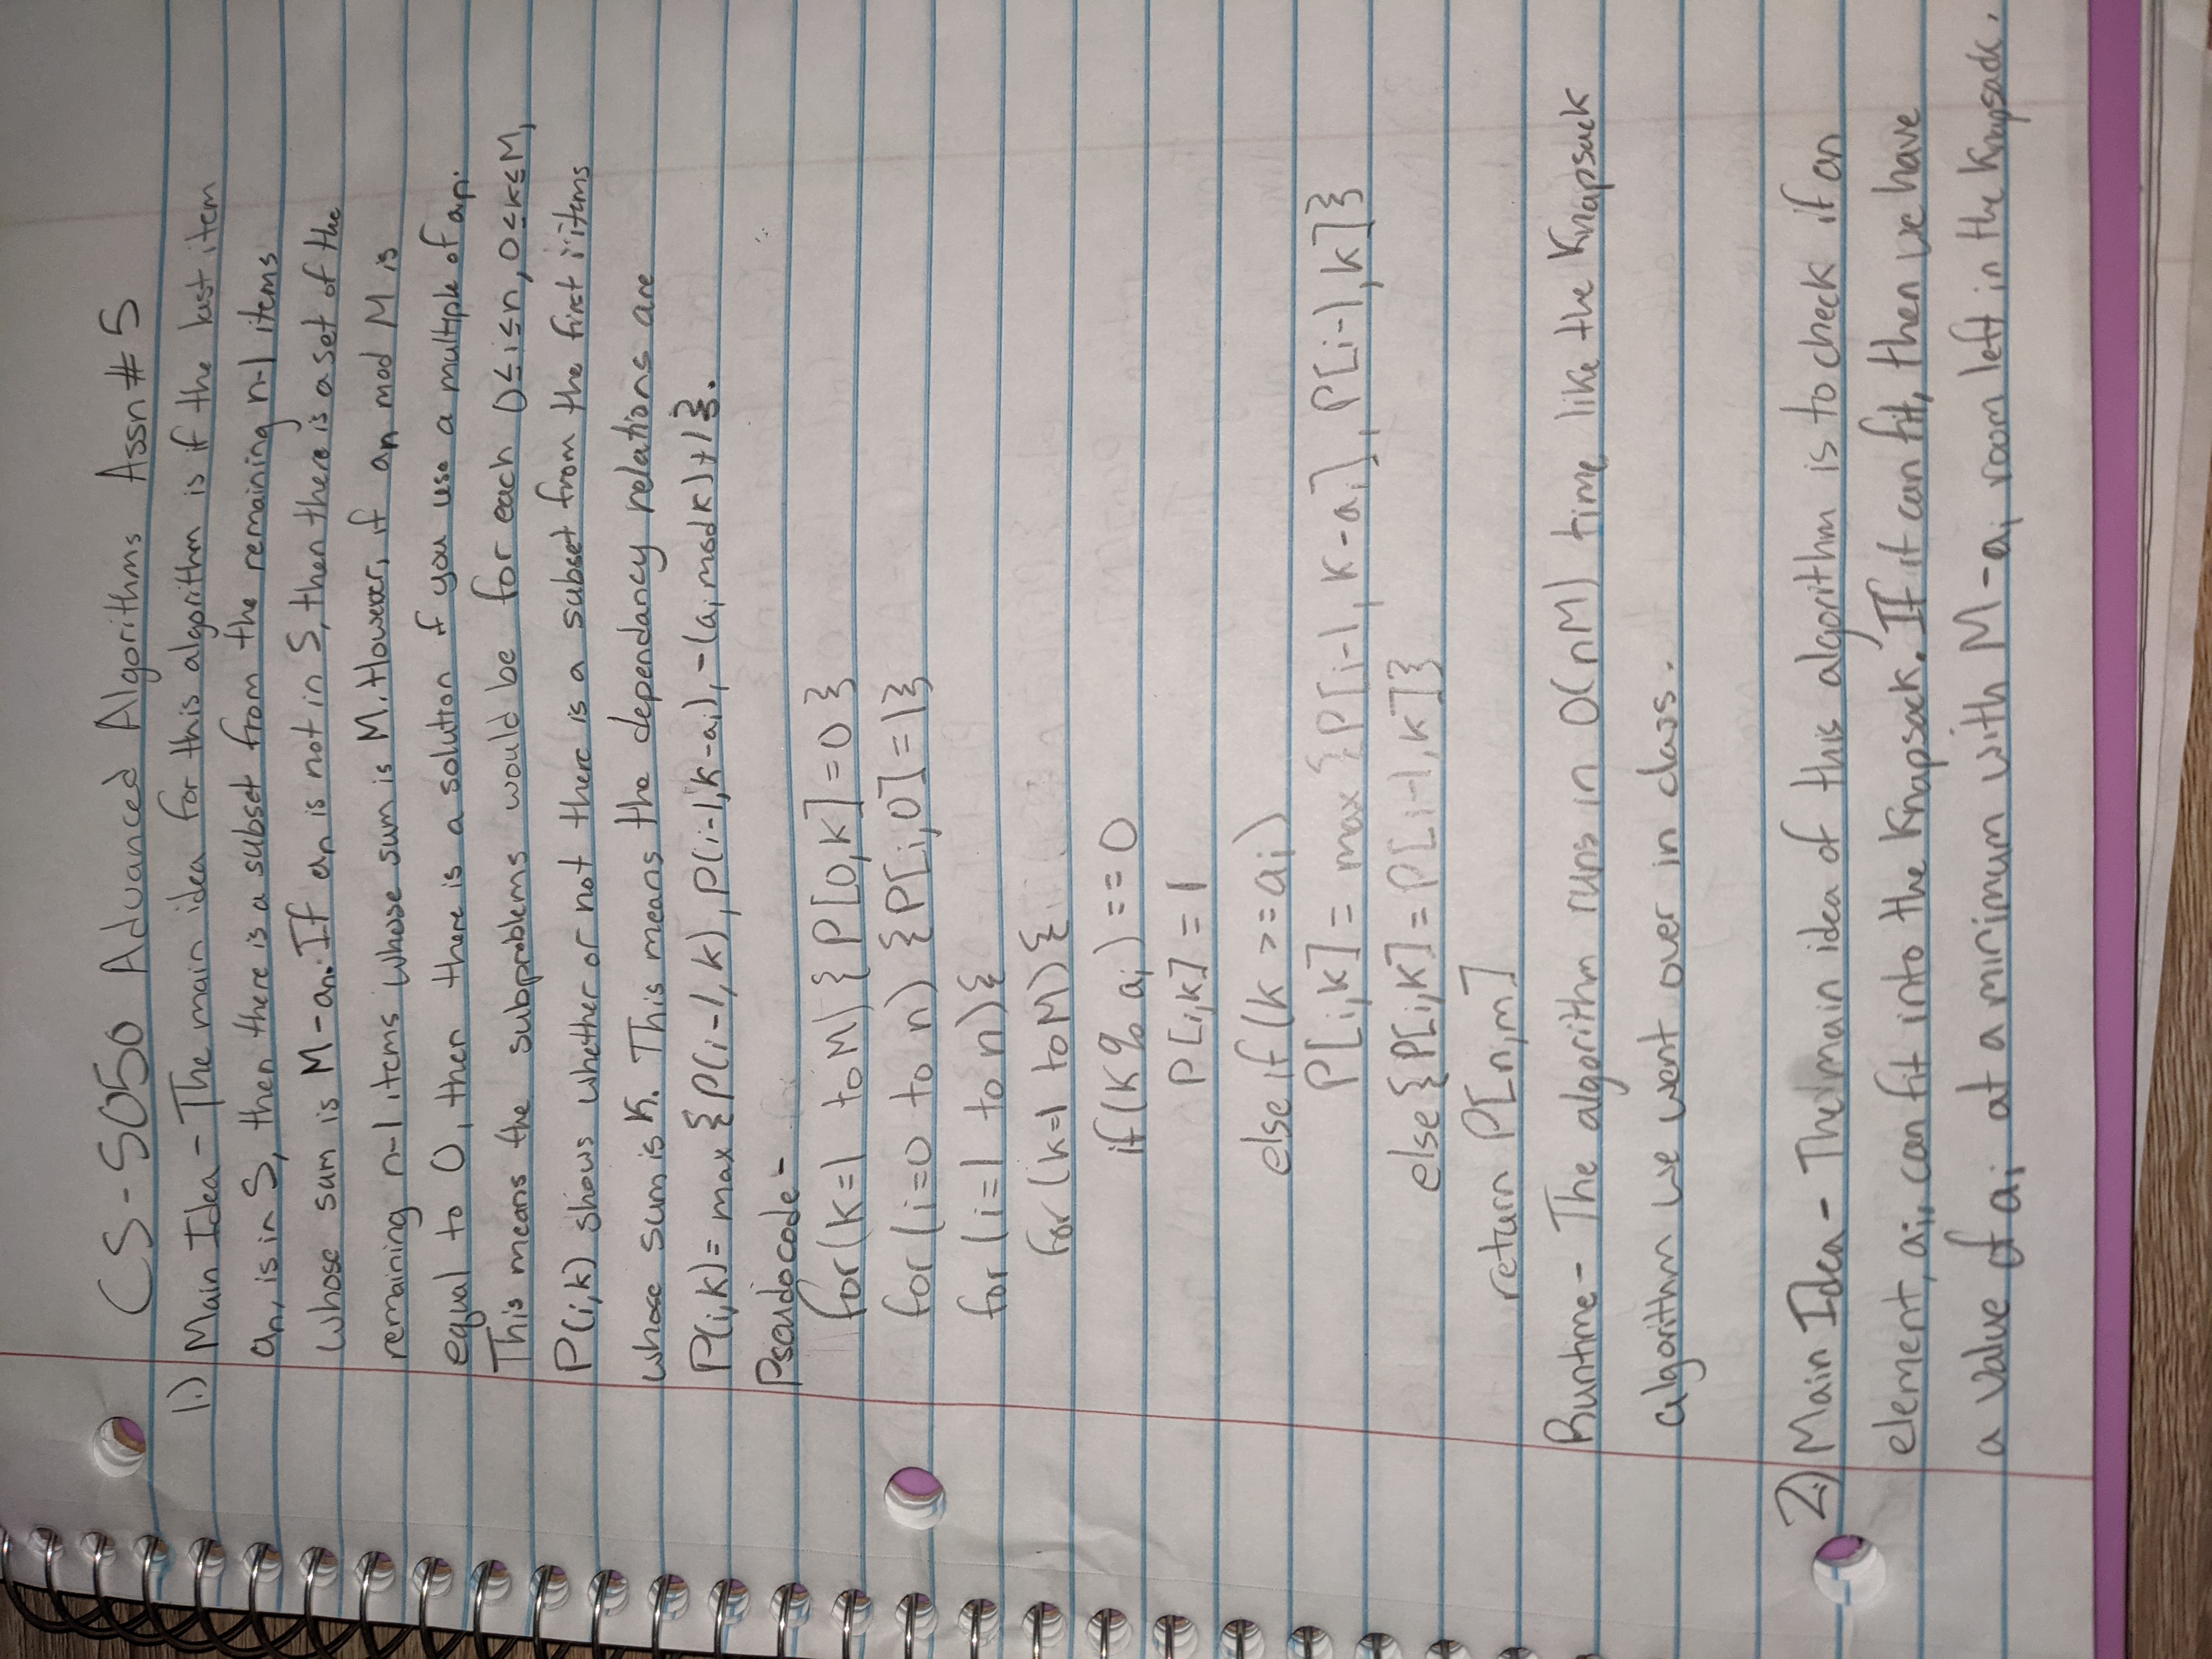 CS-5050 Advanced Algorithms Assn # 5
1.) Main Idea - The main idea for this algorithm is if the last item
an, is in S, then there is a subset from the remaining n-1 items
whose sum is M-an. If an is not in S, then there is a set of the
remaining n-1 items whose sum is M. However, if an mod M is
equal to 0, then there is a solution if you use a multiple of an.
This means the subproblems would be for each 0≤i≤n, 0≤k≤M,
P(i,k) shows whether or not there is a subset from the first i items
whose sum is K. This means the dependancy relations are
P(i,k)= max {P(i-1, k), P(i-1, k-ai), -(ai mod k)+1}.
Pseudocode -
for(k=1 to M) {P[0,k]=0}
for (i=0 to n) {P[i,0]=1}
for (i=1 to n){
for (k=1 to M){
if(k % ai) == 0
P[i,k] = 1
else if (k >= ai)
P[i,k] = max {P[i-1, k-ai], P[i-1,k]}
else {P[i,k] = P[i-1,k]}
return P[n,m]
Runtime - The algorithm runs in O(nM) time like the Knapsack
algorithm we went over in class.
2.) Main Idea - The main idea of this algorithm is to check if an
element, ai, can fit into the Knapsack. If it can fit, then we have
a value of ai at a minimum with M-ai room left in the Knapsack.